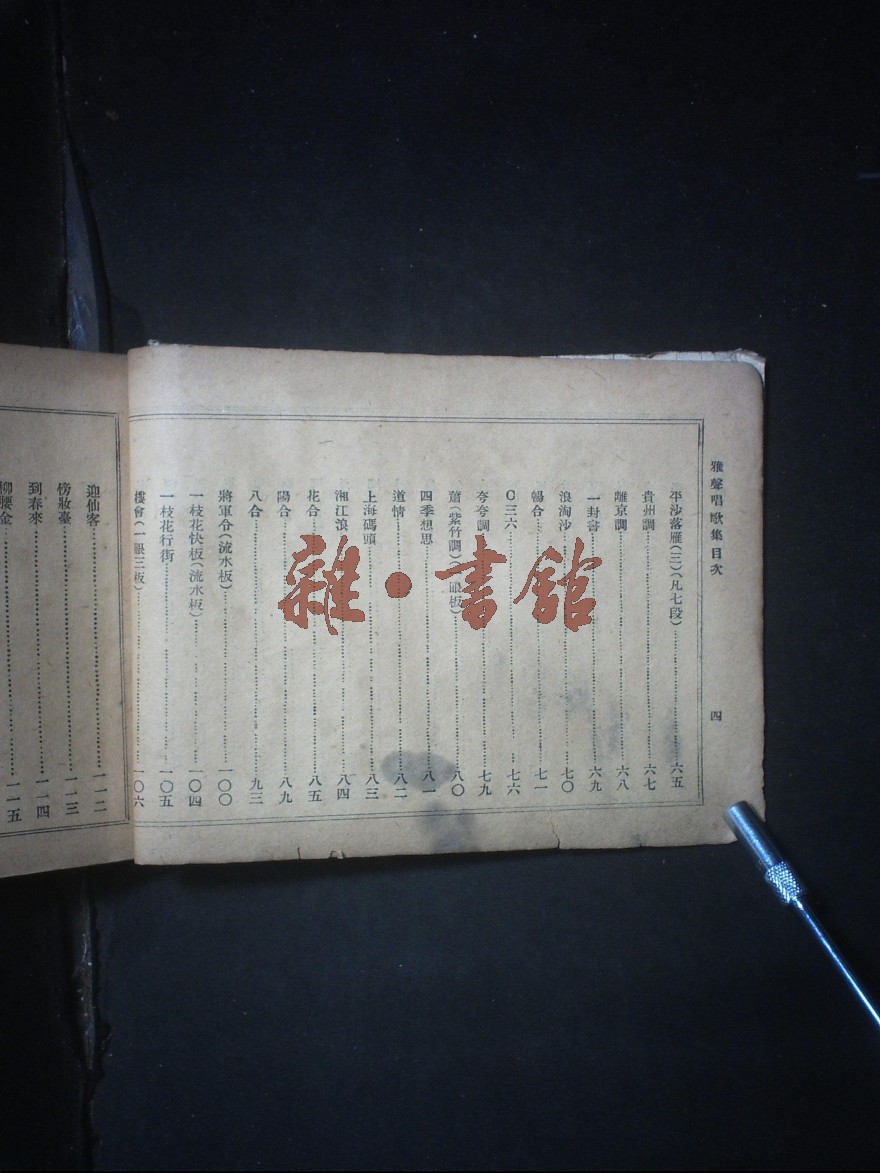 雅聲唱歌集目次
四
平沙落雁(三)(凡七段)……六五
貴州調……六七
離京調……六八
一封書……六九
浪淘沙……七〇
暢合……七一
C三六……七六
夸夸調……七九
(紫竹調)(一眼板)……八〇
四季想思……八一
道情……八二
上海碼頭……八三
湘江浪……八四
花合……八五
陽合……八九
八合……九三
將軍令(流水板)……一〇〇
一枝花快板(流水板)……一〇四
一枝花行街……一〇五
樓會(一眼三板)……一〇六
迎仙客……一一二
傍妝臺……一一三
到春來……一一四
柳腰金……一一五
雜·書館